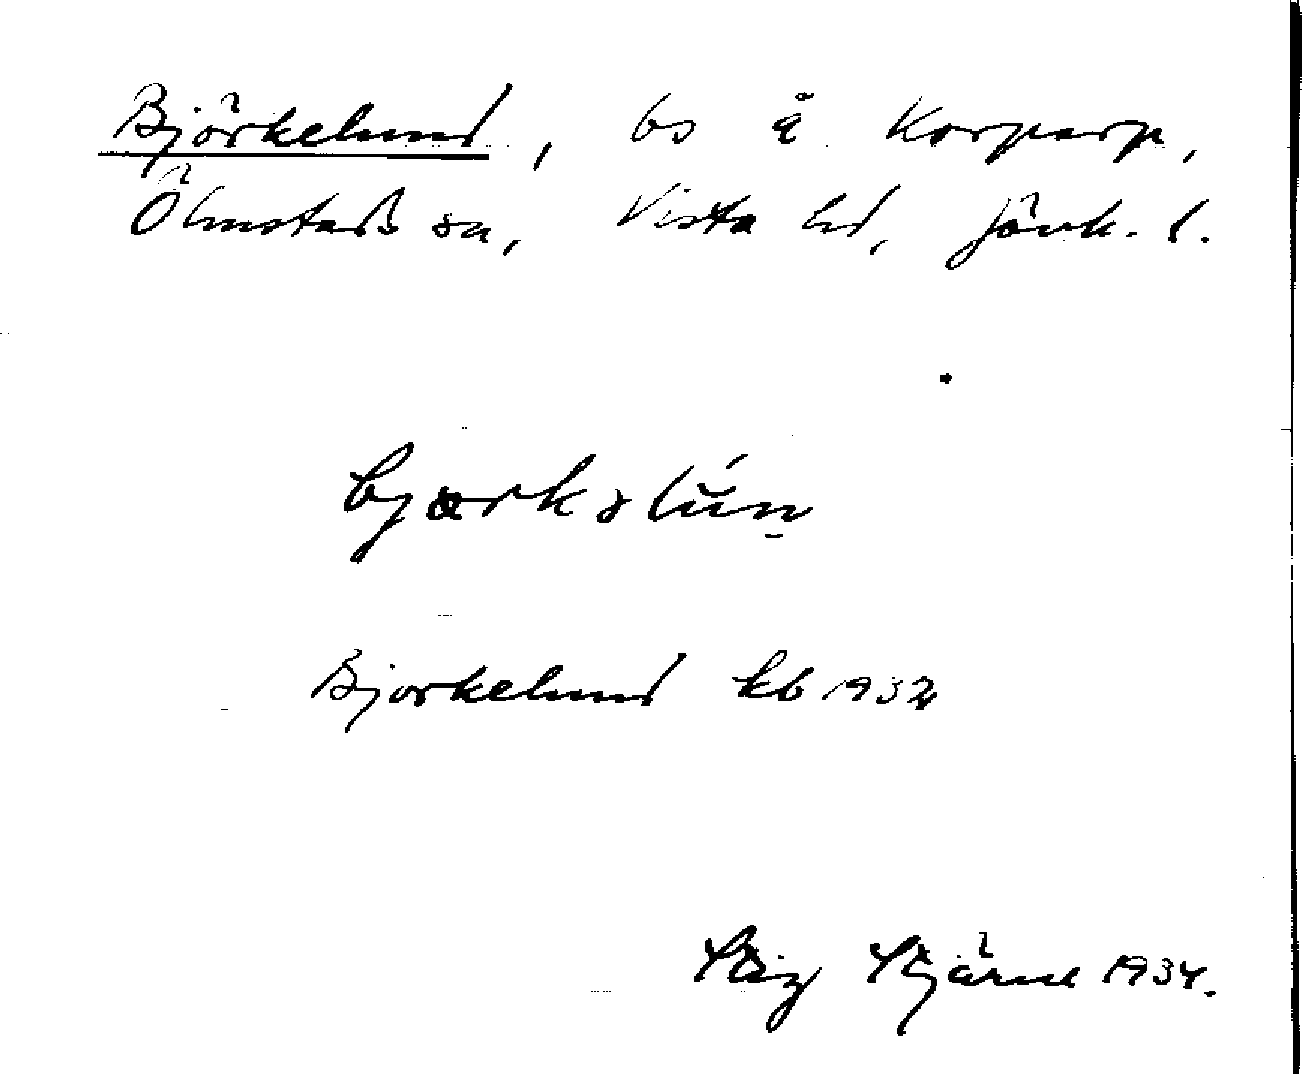 Björkelund, bs å Korparp,
Ölmstads sn, Vista hd, Jönk. l.
bjærkəlún
Björkelund kb 1932
Stig Stjärne 1934.